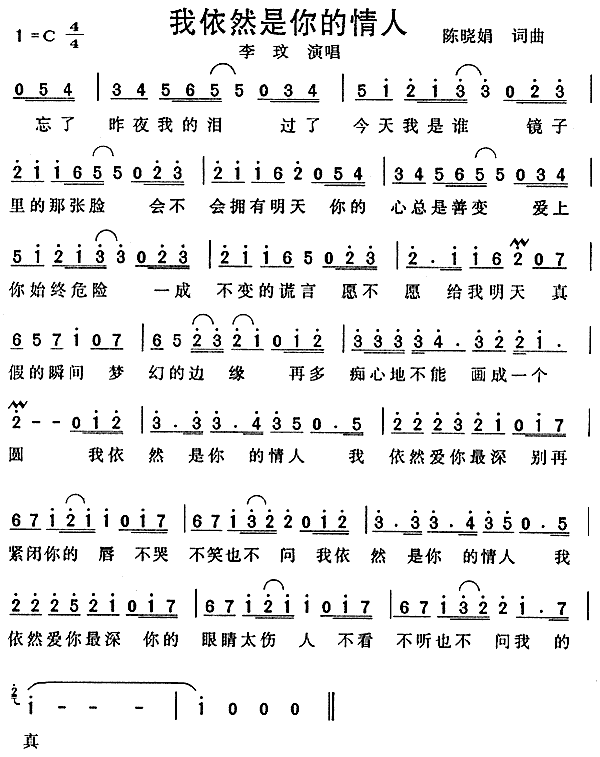 我依然是你的情人
1=C 4/4
陈晓娟 词曲
李 玟 演唱
0 5 4 | 3 4 5 6 5 5 0 3 4 | 5 1 2 1 3 3 0 2 3 |
忘了 昨夜我的泪 过了 今天我是谁 镜子
2 1 1 6 5 5 0 2 3 | 2 1 1 6 2 0 5 4 | 3 4 5 6 5 5 0 3 4 |
里的那张脸 会不 会拥有明天 你的 心总是善变 爱上
5 1 2 1 3 3 0 2 3 | 2 1 1 6 5 0 2 3 | 2 . 1 1 6 2 0 7 |
你始终危险 一成 不变的谎言 愿不 愿 给我明天 真
6 5 7 1 0 7 | 6 5 2 3 2 1 0 1 2 | 3 3 3 3 4 . 3 2 2 1 .
假的瞬间 梦 幻的边 缘 再多 痴心地不能 画成一个
2 - - 0 1 2 | 3 . 3 3 . 4 3 5 0 . 5 | 2 2 2 3 2 1 0 1 7 |
圆 我依 然 是你 的情人 我 依然爱你最深 别再
6 7 1 2 1 1 0 1 7 | 6 7 1 3 2 2 0 1 2 | 3 . 3 3 . 4 3 5 0 . 5 |
紧闭你的 唇 不哭 不笑也不 问 我依 然 是你 的情人 我
2 2 2 5 2 1 0 1 7 | 6 7 1 2 1 1 0 1 7 | 6 7 1 3 2 2 1 . 7 |
依然爱你最深 你的 眼睛太伤 人 不看 不听也不 问我 的
2 1 - - - | 1 0 0 0 ‖
真